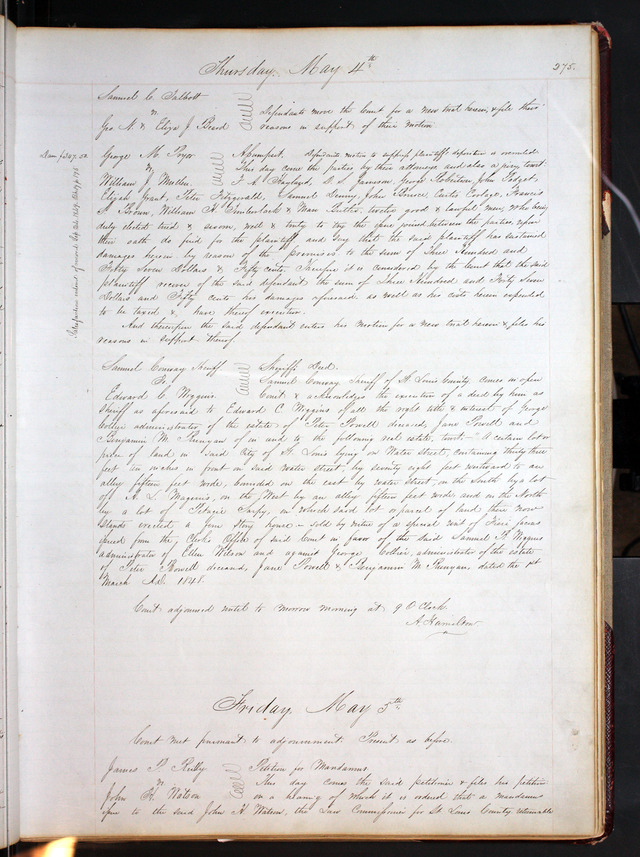 Thursday, May 4th
275.
Samuel C. Talbott
vs
Geo. N. & Eliza J. Beard
Defendants move the Court for a new trial herein, & file their
reasons in support of their motion.
Dam. $347.50
George M. Pryor
vs
William J. Mullen
Assumpsit. Defendants motion to suppress plaintiffs deposition is overruled
This day come the parties by their attorneys and also a jury towit
Elijah Grant, Peter Fitzgerald, Samuel Denny, John Bruce, Curtis
Brown, William H. Timberlock & Man Butler, twelve good & lawful men, who being
duly elected tried & sworn, well & truly to try the issue joined between the parties, upon
their oath do find for the plaintiff and say that the said plaintiff has sustained
damages herein by reason of the premises to the sum of Three Hundred and
Forty Seven Dollars & Fifty cents, Therefore it is considered by the Court that the said
plaintiff recover of the said defendant the sum of Three Hundred and Forty Seven
Dollars and Fifty cents his damages aforesaid as well as his costs herein expended
to be taxed &c, have thereof execution.
And thereupon the said defendant enters his motion for a new trial herein & files his
reasons in support thereof.
Samuel Conway Sheriff
To
Edward C. Wiggins
Sheriffs Deed.
Samuel Conway Sheriff of St Louis County comes in open
Court & acknowledges the execution of a deed by him as
Sheriff as aforesaid to Edward C Wiggins of all the right title & interest of George
Collier administrator of the estate of Peter Powell deceased, Jane Powell and
Benjamin M. Runyan of in and to the following real estate, towit: A certain lot or
piece of land in said City of St Louis lying on Water Street, containing thirty three
feet ten inches in front on said water street, by seventy eight feet westward to an
alley fifteen feet wide, bounded on the east by water street, on the South by a lot
of A. L. Magenis, on the West by an alley fifteen feet wide and on the North
by a lot of Petagie Sarpy, on which said lot or parcel of land there now
stands erected a four story house – sold by virtue of a special writ of Fieri facias
issued from the Clerks Office of said Court in favor of the said Samuel B. Wiggins
administrator of Ellen Wilson and against George Collier, administrator of the estate
of Peter Powell deceased, Jane Powell & Benjamin M Runyan, dated the 1st
March A.D. 1848.
Court adjourned until to morrow morning at 9 O'Clock.
A. Hamilton
Friday, May 5th.
Court met pursuant to adjournment. Present as before.
James P. Reilly
vs
John H. Watson
Petition for Mandamus.
This day comes the said petitioner & files his petition
on a hearing of which it is ordered that a mandamus
issue to the said John H. Watson, the Law Commissioner for St Louis County, returnable